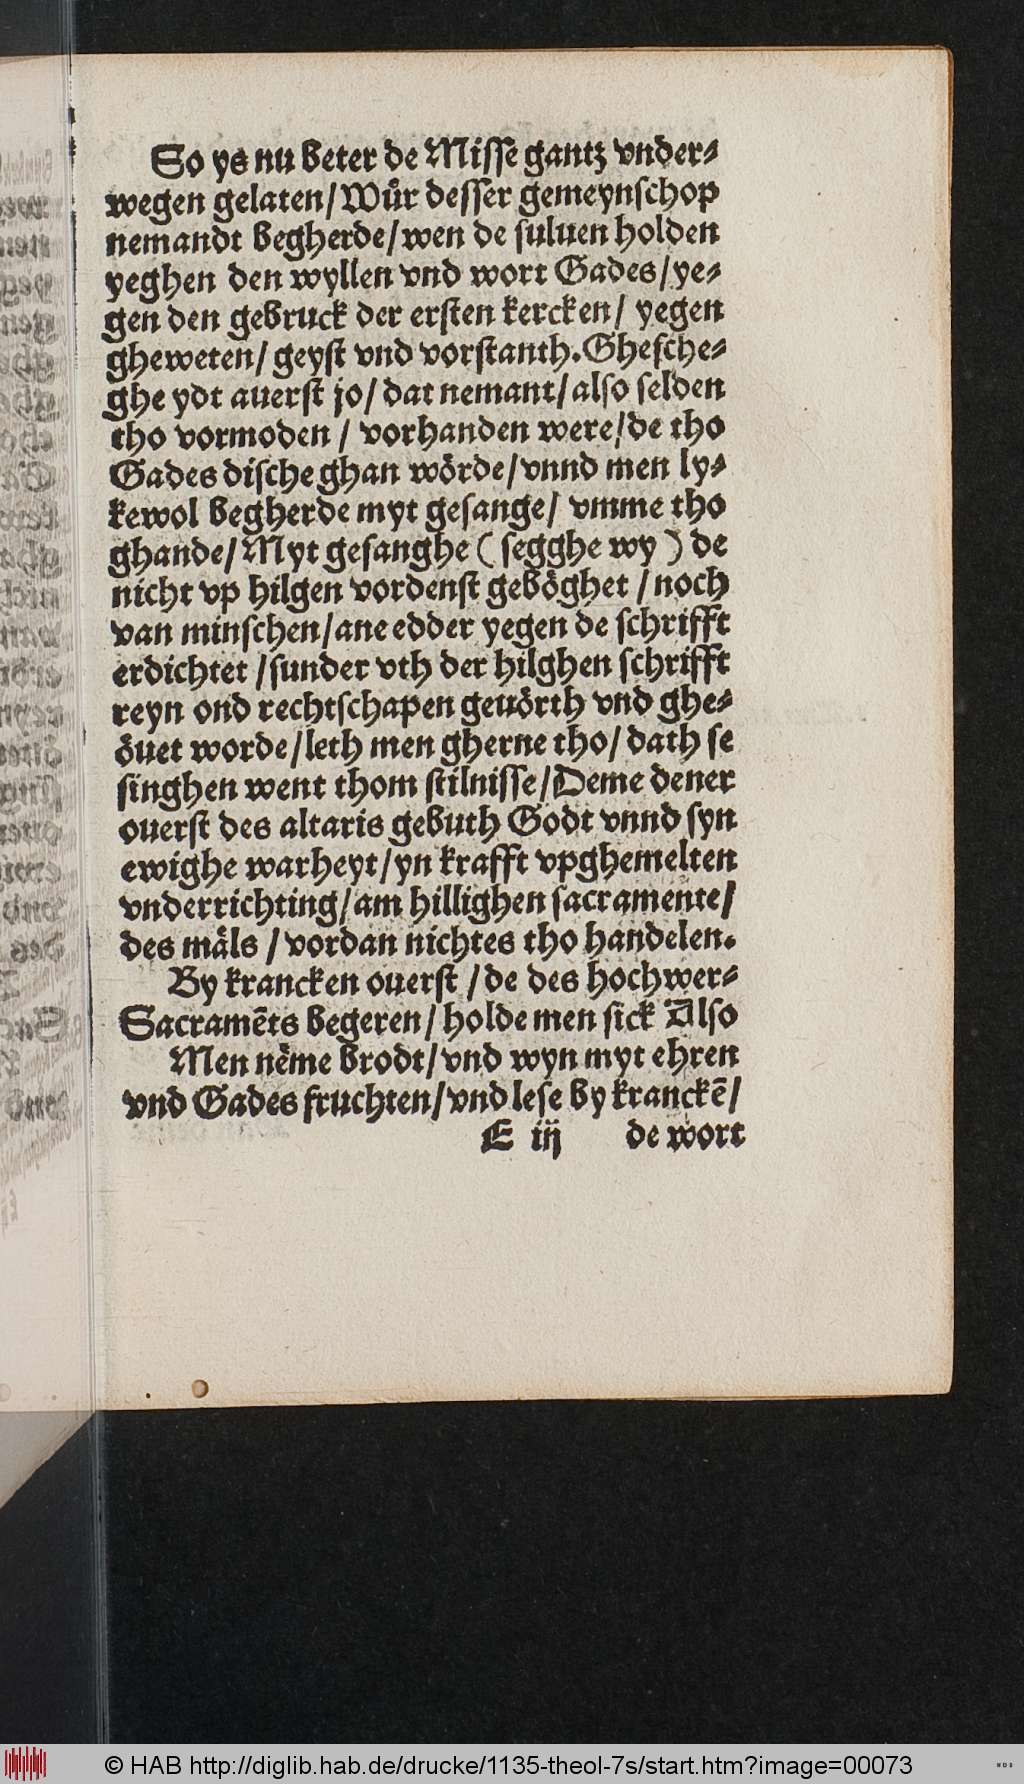 So ys nu beter de Misse gantz vnder⸗
wegen gelaten/Wuͤr desser gemeynschop
nemandt begherde/wen de suluen holden
yeghen den wyllen vnd wort Gades/ye⸗
gen den gebruck der ersten kercken/ yegen
gheweten/geyst vnd vorstanth.Ghesche⸗
ghe ydt auerst jo/dat nemant/also selden
tho vormoden / vorhanden were/de tho
Gades dische ghan woͤrde/vnnd men ly⸗
kewol begherde myt gesange/ vmme tho
ghande/Myt gesanghe ( segghe wy ) de
nicht vp hilgen vordenst geboͤghet /noch
van minschen/ane edder yegen de schrifft
erdichtet /sunder vth der hilghen schrifft
reyn ond rechtschapen geuoͤrth vnd ghe⸗
oͤuet worde/leth men gherne tho/dath se
singhen went thom stilnisse/Deme dener
ouerst des altaris gebuth Godt vnnd syn
ewighe warheyt/yn krafft vpghemelten
vnderrichting/am hillighen sacramente/
des maͤls /vordan nichtes tho handelen.
By krancken ouerst /de des hochwer⸗
Sacramēts begeren/holde men sick Also
Men neͤme brodt/vnd wyn myt ehren
vnd Gades fruchten/vnd lese by kranckē/
E iij de wort
© HAB http://diglib.hab.de/drucke/1135-theol-7s/start.htm?image=00073